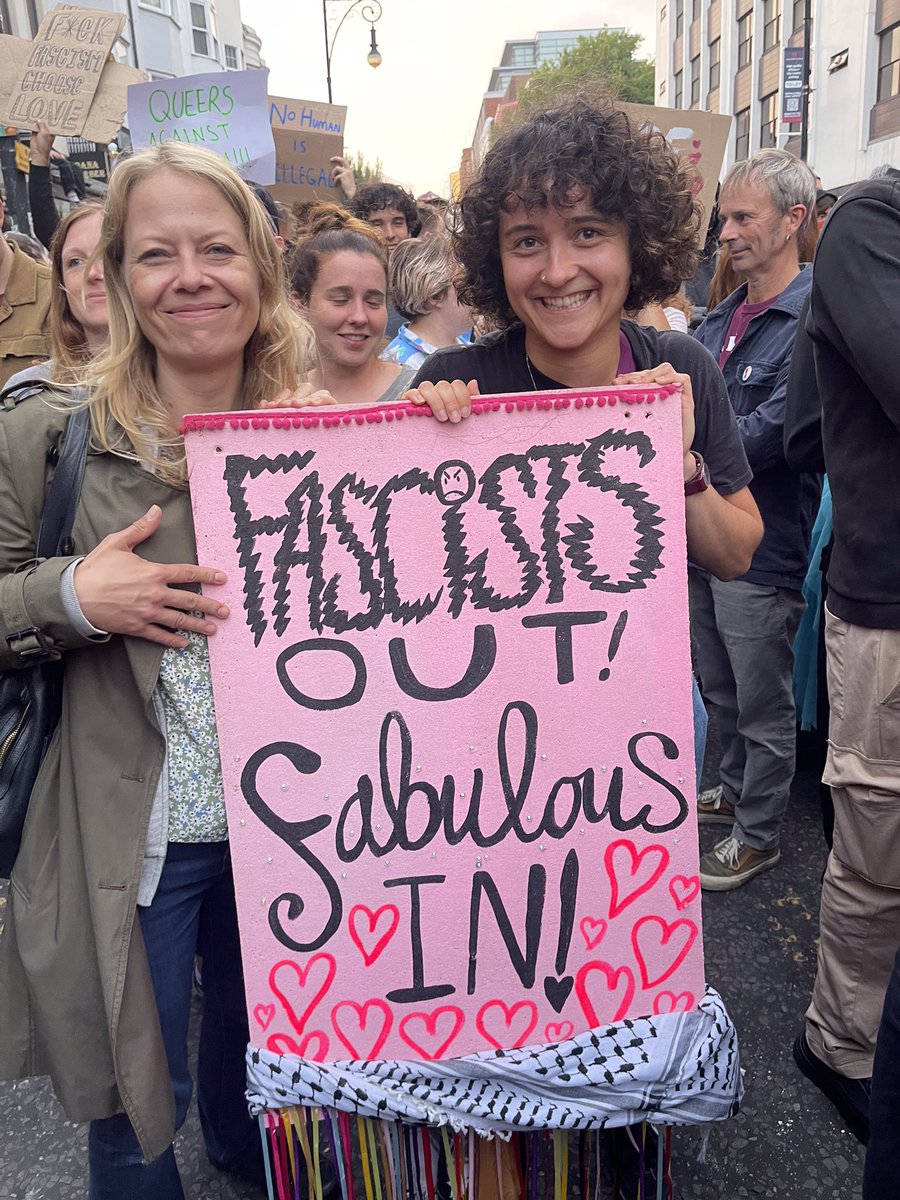 F*CK
FASCISM
CHOOSE
LOVE
QUEERS
AGAINST
No HUMAN
IS
ILLEGAL
FASCISTS
OUT!
Fabulous
IN!